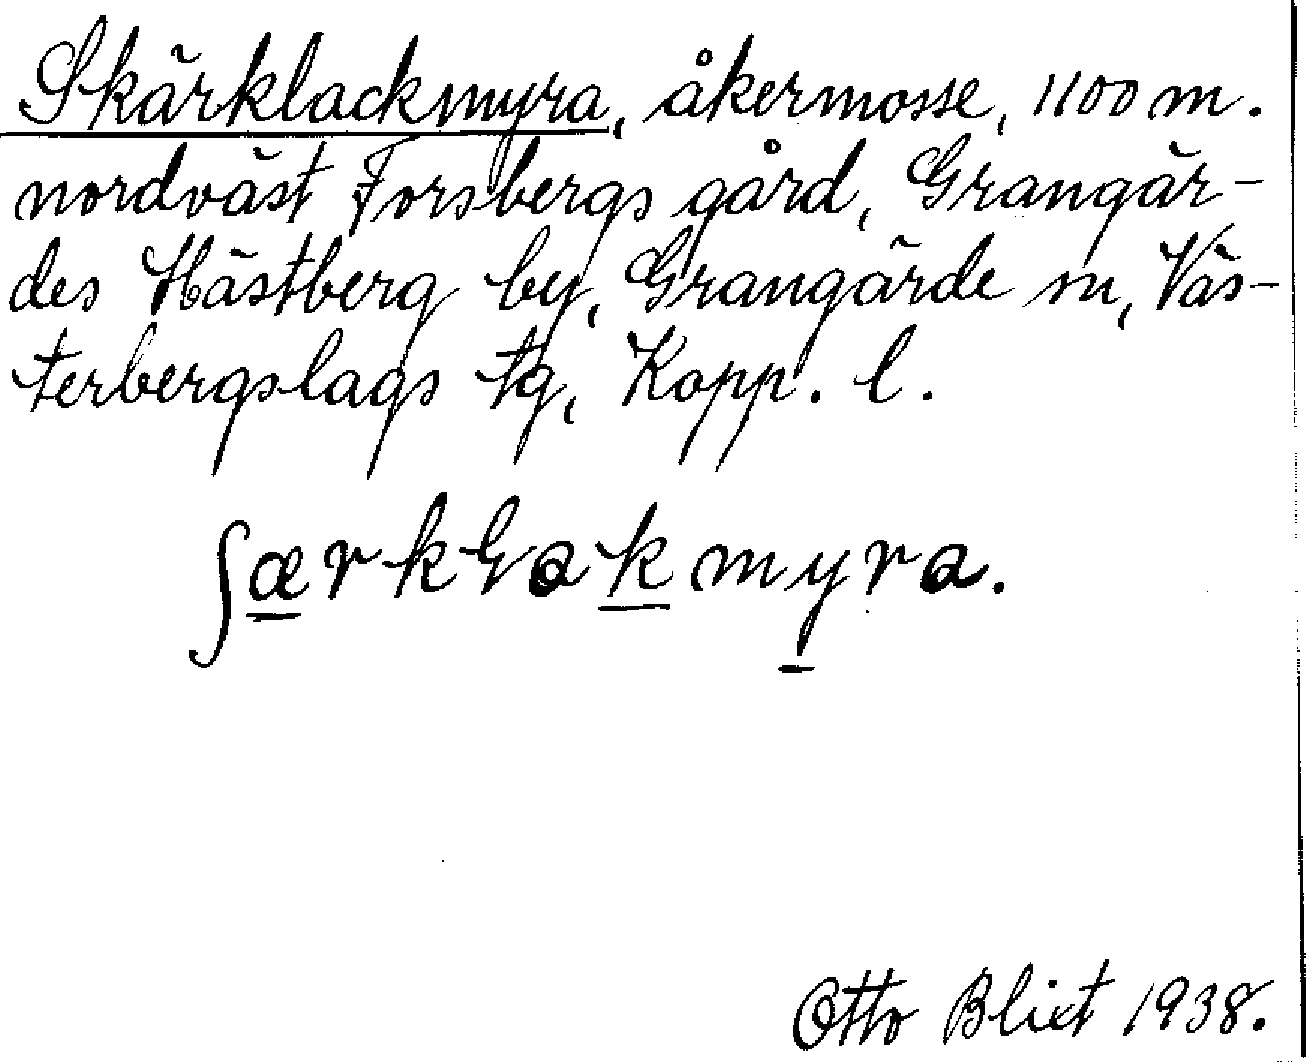 Skärklackmyra, åkermosse, 1100 m.
nordväst Forsbergs gård, Grangär-
des Hästberg by, Grangärde sn, Väs-
terbergslags tg, Kopp. l.
ʃærkɬakmyra.
Otto Blixt 1938.